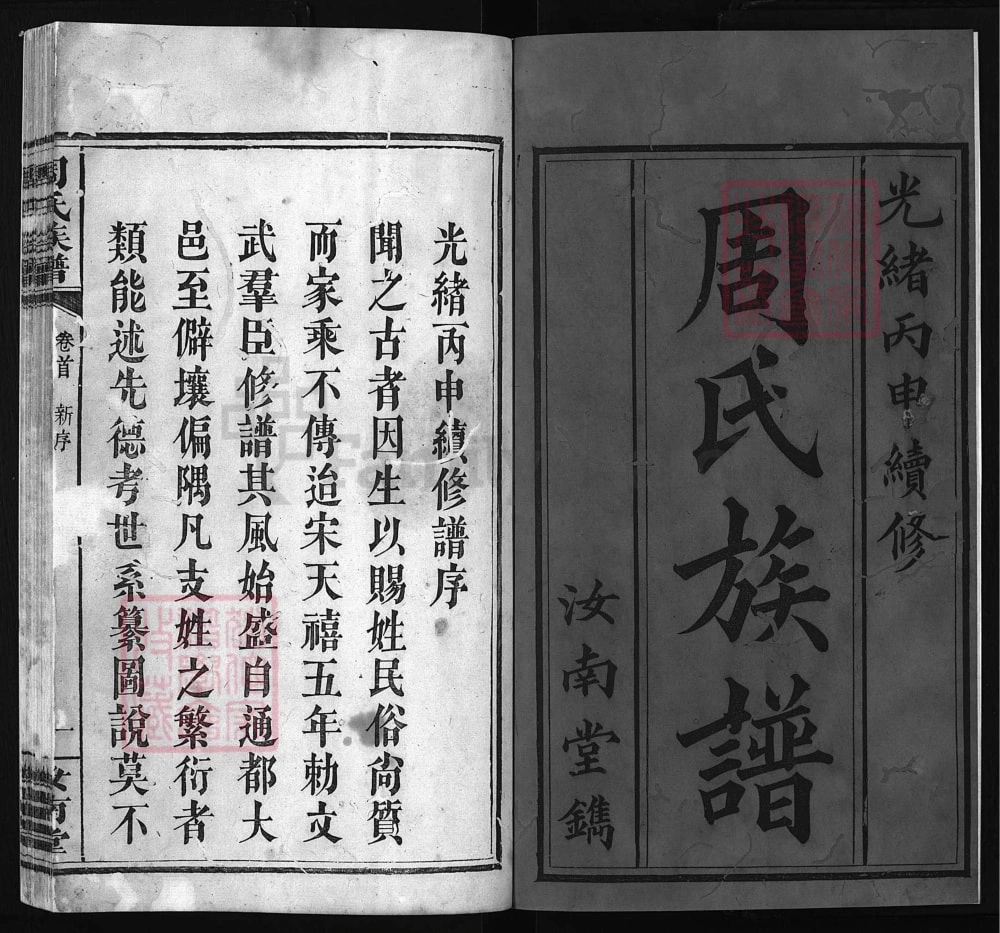 光緒丙申續修
周氏族譜
汝南堂鐫
光緒丙申續修譜序
聞之古者因生以賜姓民俗尙質
而家乘不傳迨宋天禧五年勅文
武羣臣修譜其風始盛自通都大
邑至僻壤偏隅凡支姓之繁衍者
類能述先德考世系纂圖說莫不
周氏族譜
卷首 新序
一
汝南堂